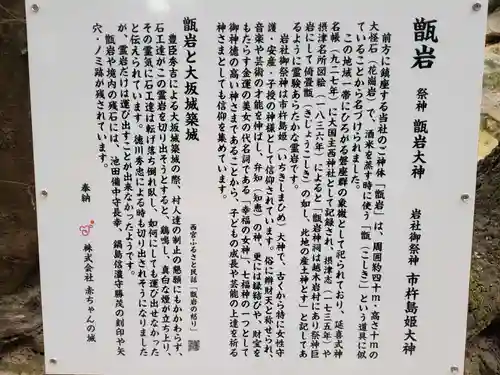 甑岩　祭神　甑岩大神　岩社御祭神　市杵島姫大神
前方に鎮座する当社のご神体「甑岩」は、周囲約四十m・高さ十mの
大怪石（花崗岩）で、酒米を蒸す時に使う「甑（こしき）」という道具に似
ていることから名づけられました。
この地域一帯にひろがる磐座群の象徴として祀られており、延喜式神
名帳（九二七年）に大国主西神社として記録され、摂津志（一七三五年）や
摂津名所図絵（一八三六年）によると「甑岩神祠は越木岩村にあり祭神巨
岩にして倚畳甑（きじょうこしき）の如し、此地の産土神とす」と記してあ
るように霊験あらたかな霊岩です。
岩社御祭神は市杵島姫（いちきしまひめ）大神で、古くから特に女性守
護・安産・子授の神様として信仰されています。俗に辯財天と称せられ、
音楽や芸術の才能を伸ばし、弁知（知恵）の神、更には縁結びや、財宝を
もたらす金運の美女の代名詞である「幸福の女神」、七福神の一つとして
御神徳の高い神さまであることから、子どもの成長や芸能の上達を祈る
神さまとしても信仰を集めています。
甑岩と大坂城築城　西宮ふるさと民話「甑岩の怒り」
豊臣秀吉による大坂城築城の際、村人達の制止の懇願にもかかわらず、
石工達がこの霊岩を切り出そうとすると、鶏鳴し、真白な煙が立ち上り、
その霊気に石工達は転げ落ち倒れ臥し、如何にしても運び出せなかった
と伝えられています。徳川秀忠による時も切り出されそうになりました
が、霊岩だけは運び出すことが出来なかったようです。
甑岩や境内の残石には、池田備中守長幸、鍋島信濃守勝茂の刻印や矢
穴・ノミ跡が残されています。
奉納　株式会社 赤ちゃんの城